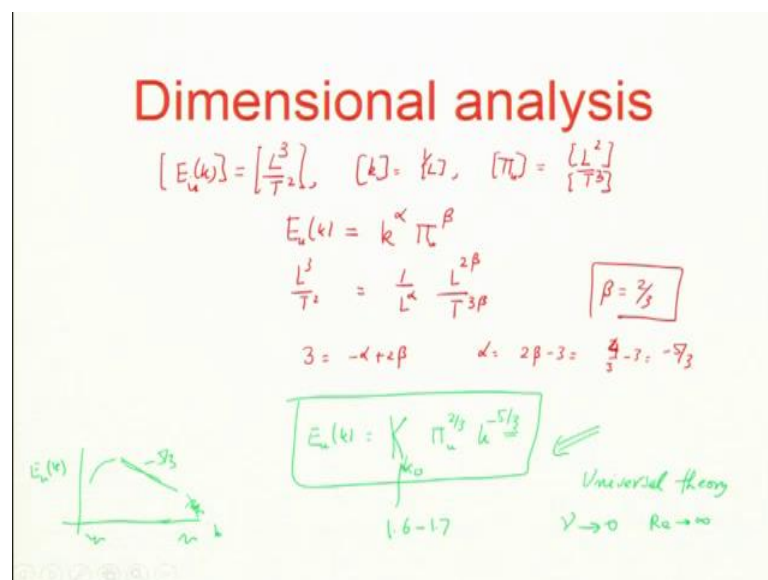 Dimensional analysis
[E_u(k)] = [L^3/T^2], [k] = 1/[L], [Π_u] = [L^2]/[T^3]
E_u(k) = k^α Π_u^β
L^3/T^2 = 1/L^α L^{2β}/T^{3β} β = 2/3
3 = -α + 2β α = 2β - 3 = 4/3 - 3 = -5/3
E_u(k) = K Π_u^{2/3} k^{-5/3}
K_0
1.6-1.7
Universal theory
ν → 0 Re → ∞
E_u(k) -5/3 k